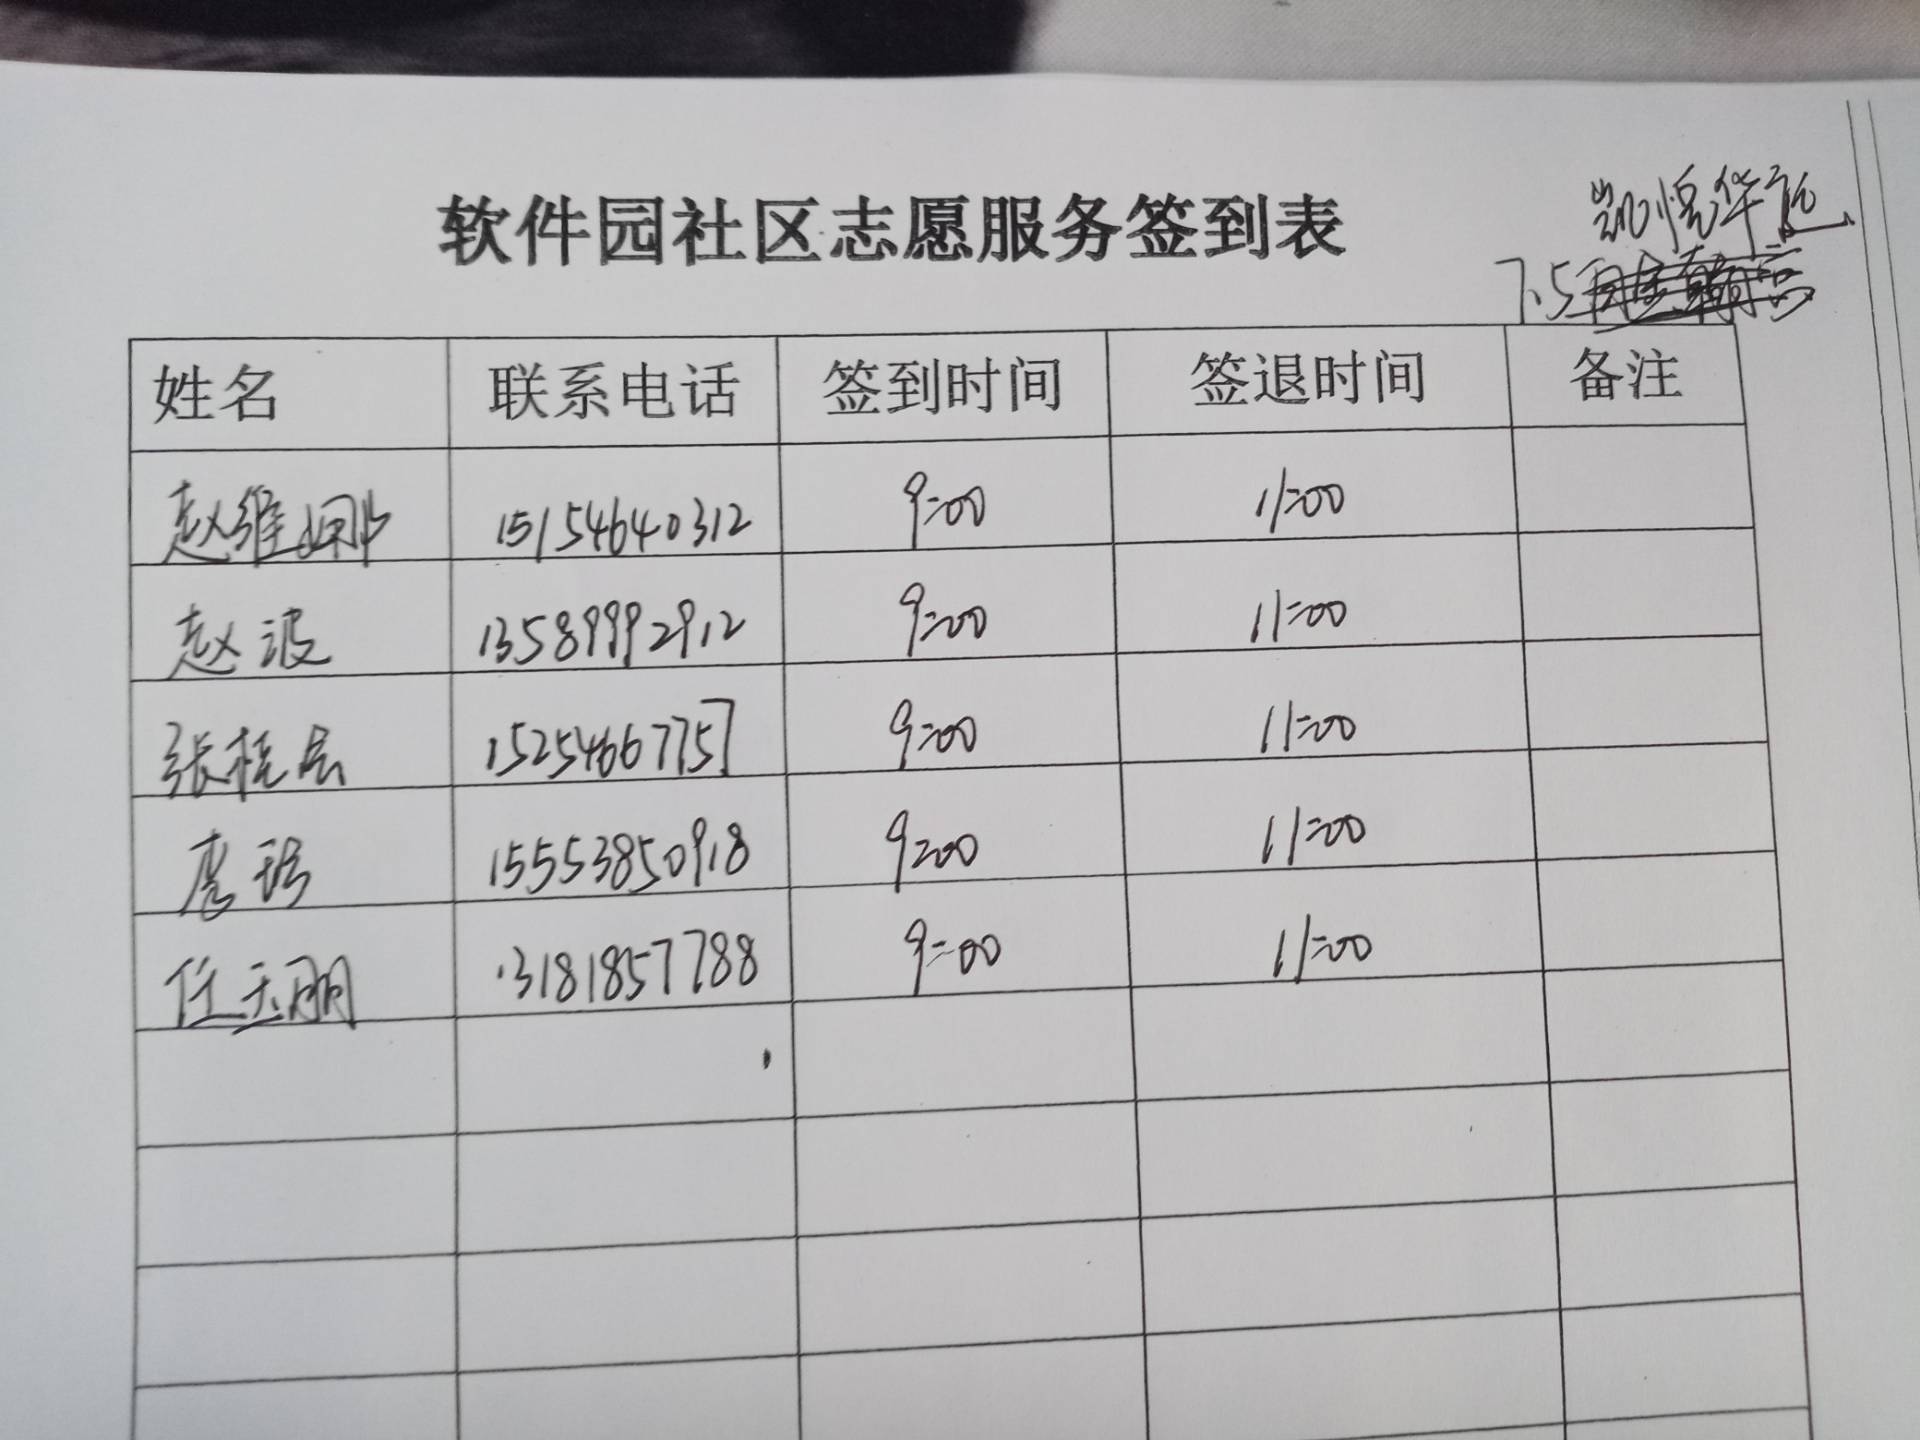 软件园社区志愿服务签到表
凯悦华庭
7.5
姓名 联系电话 签到时间 签退时间 备注
赵维娜 15154640312 9:00 11:00
赵波 13589992912 9:00 11:00
张桂 15254667757 9:00 11:00
15553850918 9:00 11:00
任玉鹏 13181857788 9:00 11:00